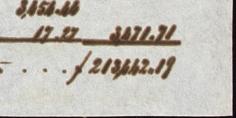 3,654.44
17.27 3,671.71
. . . . £ 213,642.19